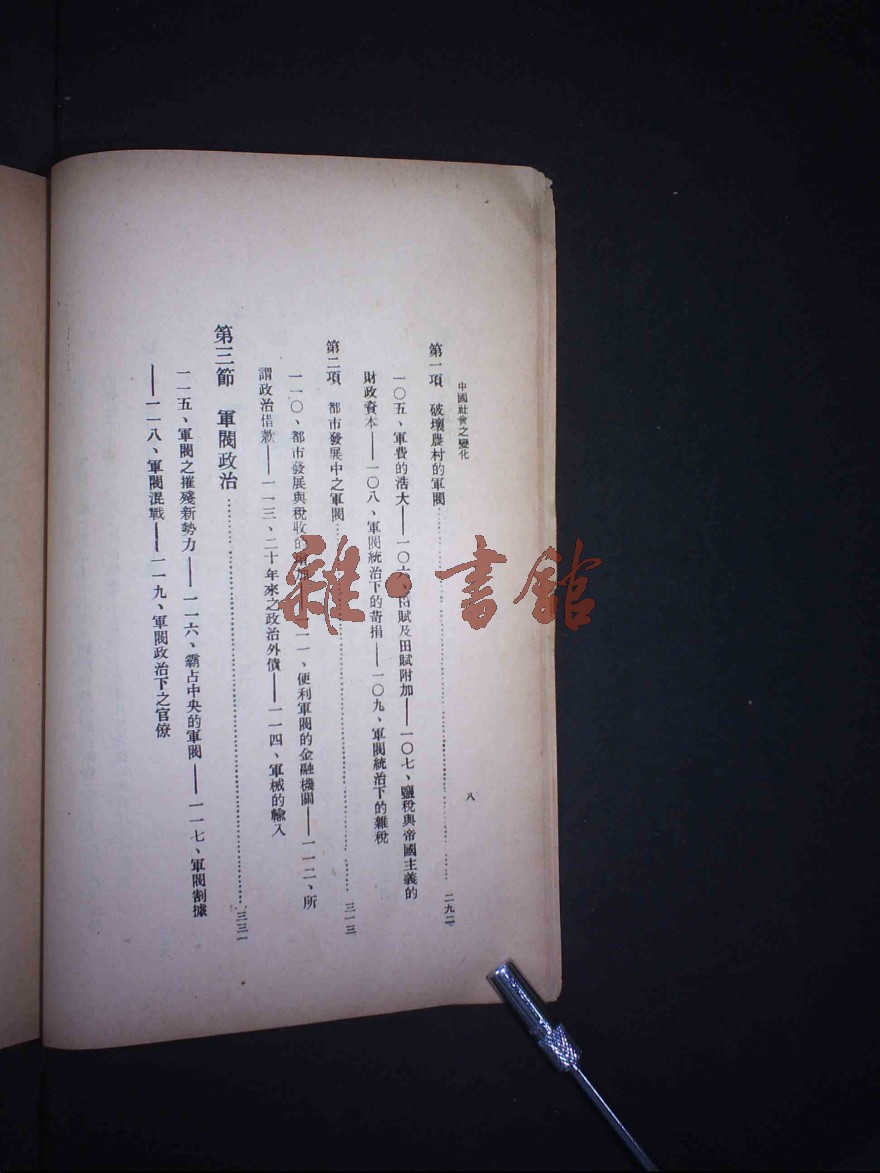 中國社會之變化
八
第一項 破壞農村的軍閥……二九二
一〇五、軍費的浩大——一〇六、田賦及田賦附加——一〇七、鹽稅與帝國主義的
財政資本——一〇八、軍閥統治下的苛捐——一〇九、軍閥統治下的雜稅
第二項 都市發展中之軍閥……三一三
一一〇、都市發展與稅收的 一一一、便利軍閥的金融機關——一一二、所
謂政治借款——一一三、二十年來之政治外債——一一四、軍械的輸入
第三節 軍閥政治……三三一
一一五、軍閥之摧殘新勢力——一一六、霸占中央的軍閥——一一七、軍閥割據
——一一八、軍閥混戰——一一九、軍閥政治下之官僚
雜·書館